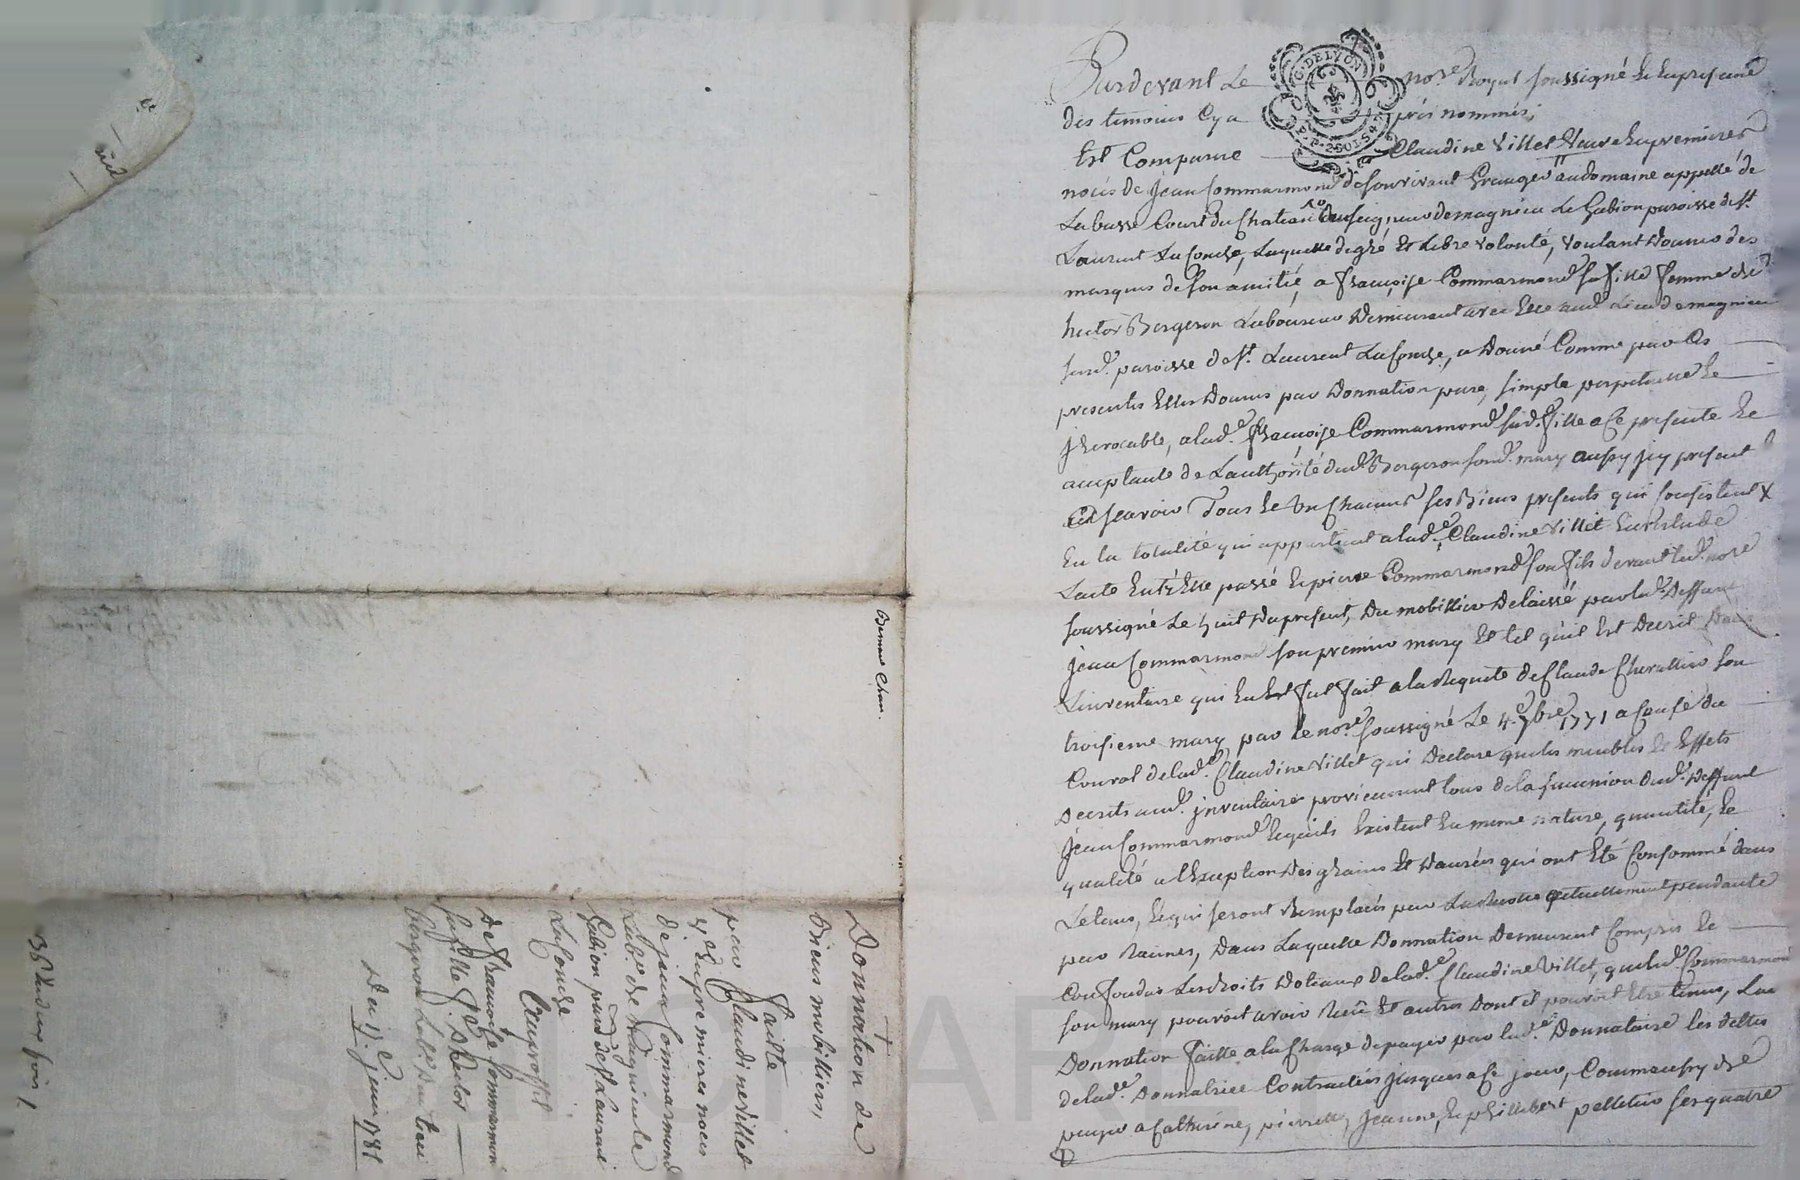 Pardevant Le nore Royal soussigné Et En presence
des temoins Cy a prés nommés,
G. DE LYON
2 SOLS
Est Comparue Claudine Villet Veuve En premieres
noces de Jean Commarmond de son vivant Granger au domaine appellé de
La basse Court du Chateau du seigneur de magnieu Le Gabion paroisse de St.
Laurent La Conche, Laquelle de gré Et Libre volonté, voulant Donner des
marques de son amitié, a françoise Commarmond sa fille femme de
hector Bergeron Laboureur Demeurant avec Elle aud. Lieu de magnieu
susd. paroisse de St. Laurent La Conche, a Donné Comme par Ces
presentes Elle Donne par Donnation pure, simple perpetuelle Et
jrrevocable, a lad.e françoise Commarmond sad. fille a Ce presente Et
acceptante de L'authorité dud. Bergeron sond. mary aussy jcy present
scavoir Tous Et Un Chacuns ses Biens presents qui Consistent
En la totalité qui appartient a lad.e Claudine Villet En vertu de
L'acte Entr'Elle passé Et pierre Commarmond son fils devant led. nore
soussigné Le huit Du present, Du mobillier Delaissé par led. Deffunt
Jean Commarmond son premier mary Et tel qu'il Est Decrit Dans
L'inventaire qui En fut fait a la Requete de Claude Chevallier son
troisieme mary, par le nore soussigné Le 4.e 7bre 1771 a Cause du
Convol de lad.e Claudine Villet qui Declare que les meubles Et Effets
Decrits aud. jnventaire proviennent tous de la succession dud. Deffunt
Jean Commarmond Et qu'ils Existent En meme nature, quantité, Et
qualité a l'Exception Des grains Et Danrées qui ont Eté Consommé dans
Le tems, Et qui seront Remplacés par La Recolte actuellement pendante
par Racines, Dans Laquelle Donnation Demeurent Compris Et
Confondus Les droits Dotaux de lad.e Claudine Villet, que led. Commarmond
son mary pourroit avoir Reçu Et autres Dont il pourroit Etre tenu, La
Donnation faitte a la Charge de payer par lad.e Donnataire les dettes
de lad.e Donnatrice Contractées jusques a Ce jour, Comm'aussy de
payer a Catherine, pierrette, Jeanne, Et philibert pelletier ses quatre
Donnation de
Biens mobilliers,
faitte
par Claudine Villet
Ve. En premieres noces
de jean Commarmond
Labr. de Magnieu le
Gabion parr. de St Laurent
La Conche
Au proffit
De françoise Commarmond
sa fille fe. d'hector
Bergeron Labr. dud. lieu
Du 11.e juin 1781